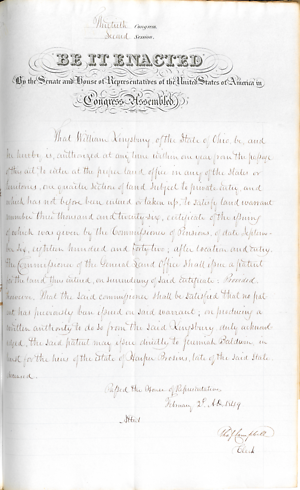 Thirtieth Congress
Second Session.
BE IT ENACTED
By the Senate and House of Representatives of the United States of America in
Congress Assembled,
That William Kingsbury of the State of Ohio be, and
he hereby is, authorized at any time within one year from the passage
of this act to enter at the proper land office in any of the States or
Territories, one quarter section of land subject to private entry, and
which has not before been entered or taken up, to satisfy land warrant
number thousand and twenty six, certificate of the
of which was given by the Commissioner of Pensions, of date Septem-
ber six, eighteen hundred and forty two; after location and entry,
the Commissioner of the General Land Office shall issue a patent
for the land thus entered, on surrendering of said certificate: Provided
however, That the said commissioner shall be satisfied that no pat-
ent has previously been issued on said warrant; on producing a
written authority to do so from the said Kingsbury, duly acknowl-
edged, the said patent may issue directly to Jeremiah Baldwin, in
trust for the heirs of the Estate of Harper Broons, late of the said State
deceased.
Passed the House of Representatives
February 2d, A.D. 1849
Attest
Campbell
Clerk